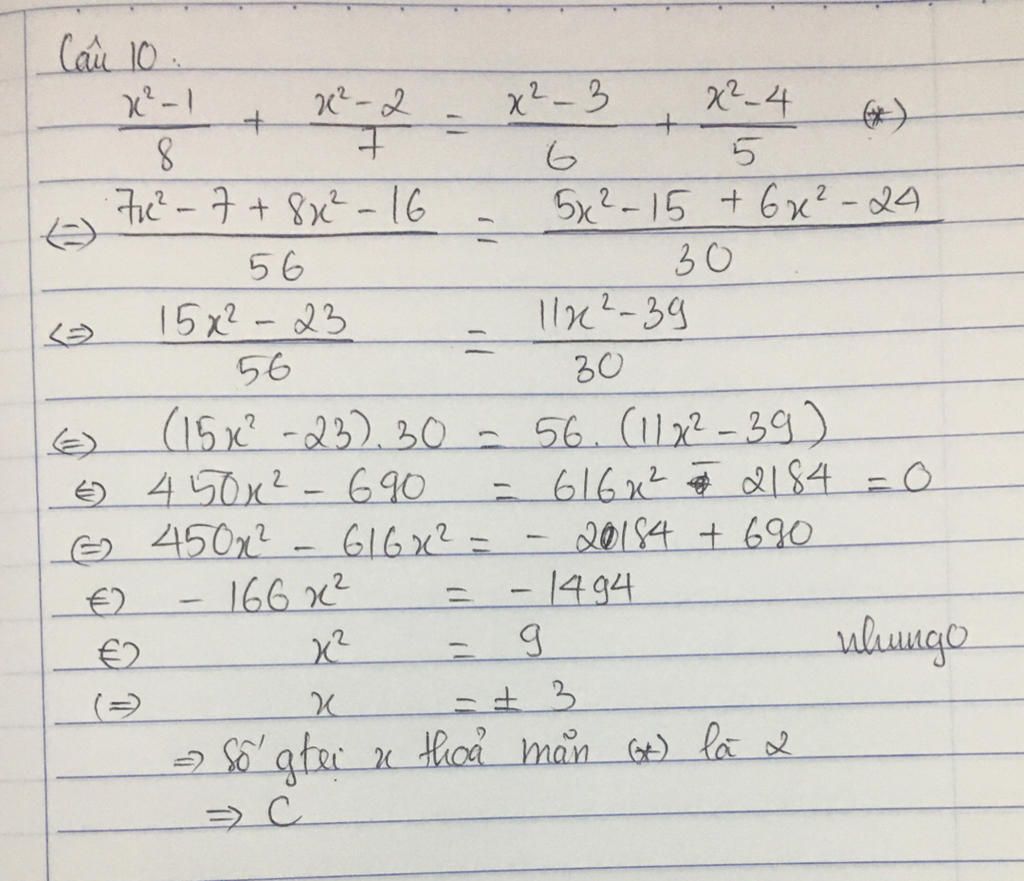 Câu 10.
(x² - 1)/8 + (x² - 2)/7 = (x² - 3)/6 + (x² - 4)/5 (*)
<=> (7x² - 7 + 8x² - 16)/56 = (5x² - 15 + 6x² - 24)/30
<=> (15x² - 23)/56 = (11x² - 39)/30
<=> (15x² - 23).30 = 56.(11x² - 39)
<=> 450x² - 690 = 616x² - 2184 = 0
<=> 450x² - 616x² = - 20184 + 690
<=> - 166x² = - 1494
<=> x² = 9 nhungo
<=> x = ± 3
=> Số gtrị x thoả mãn (*) là 2
=> C